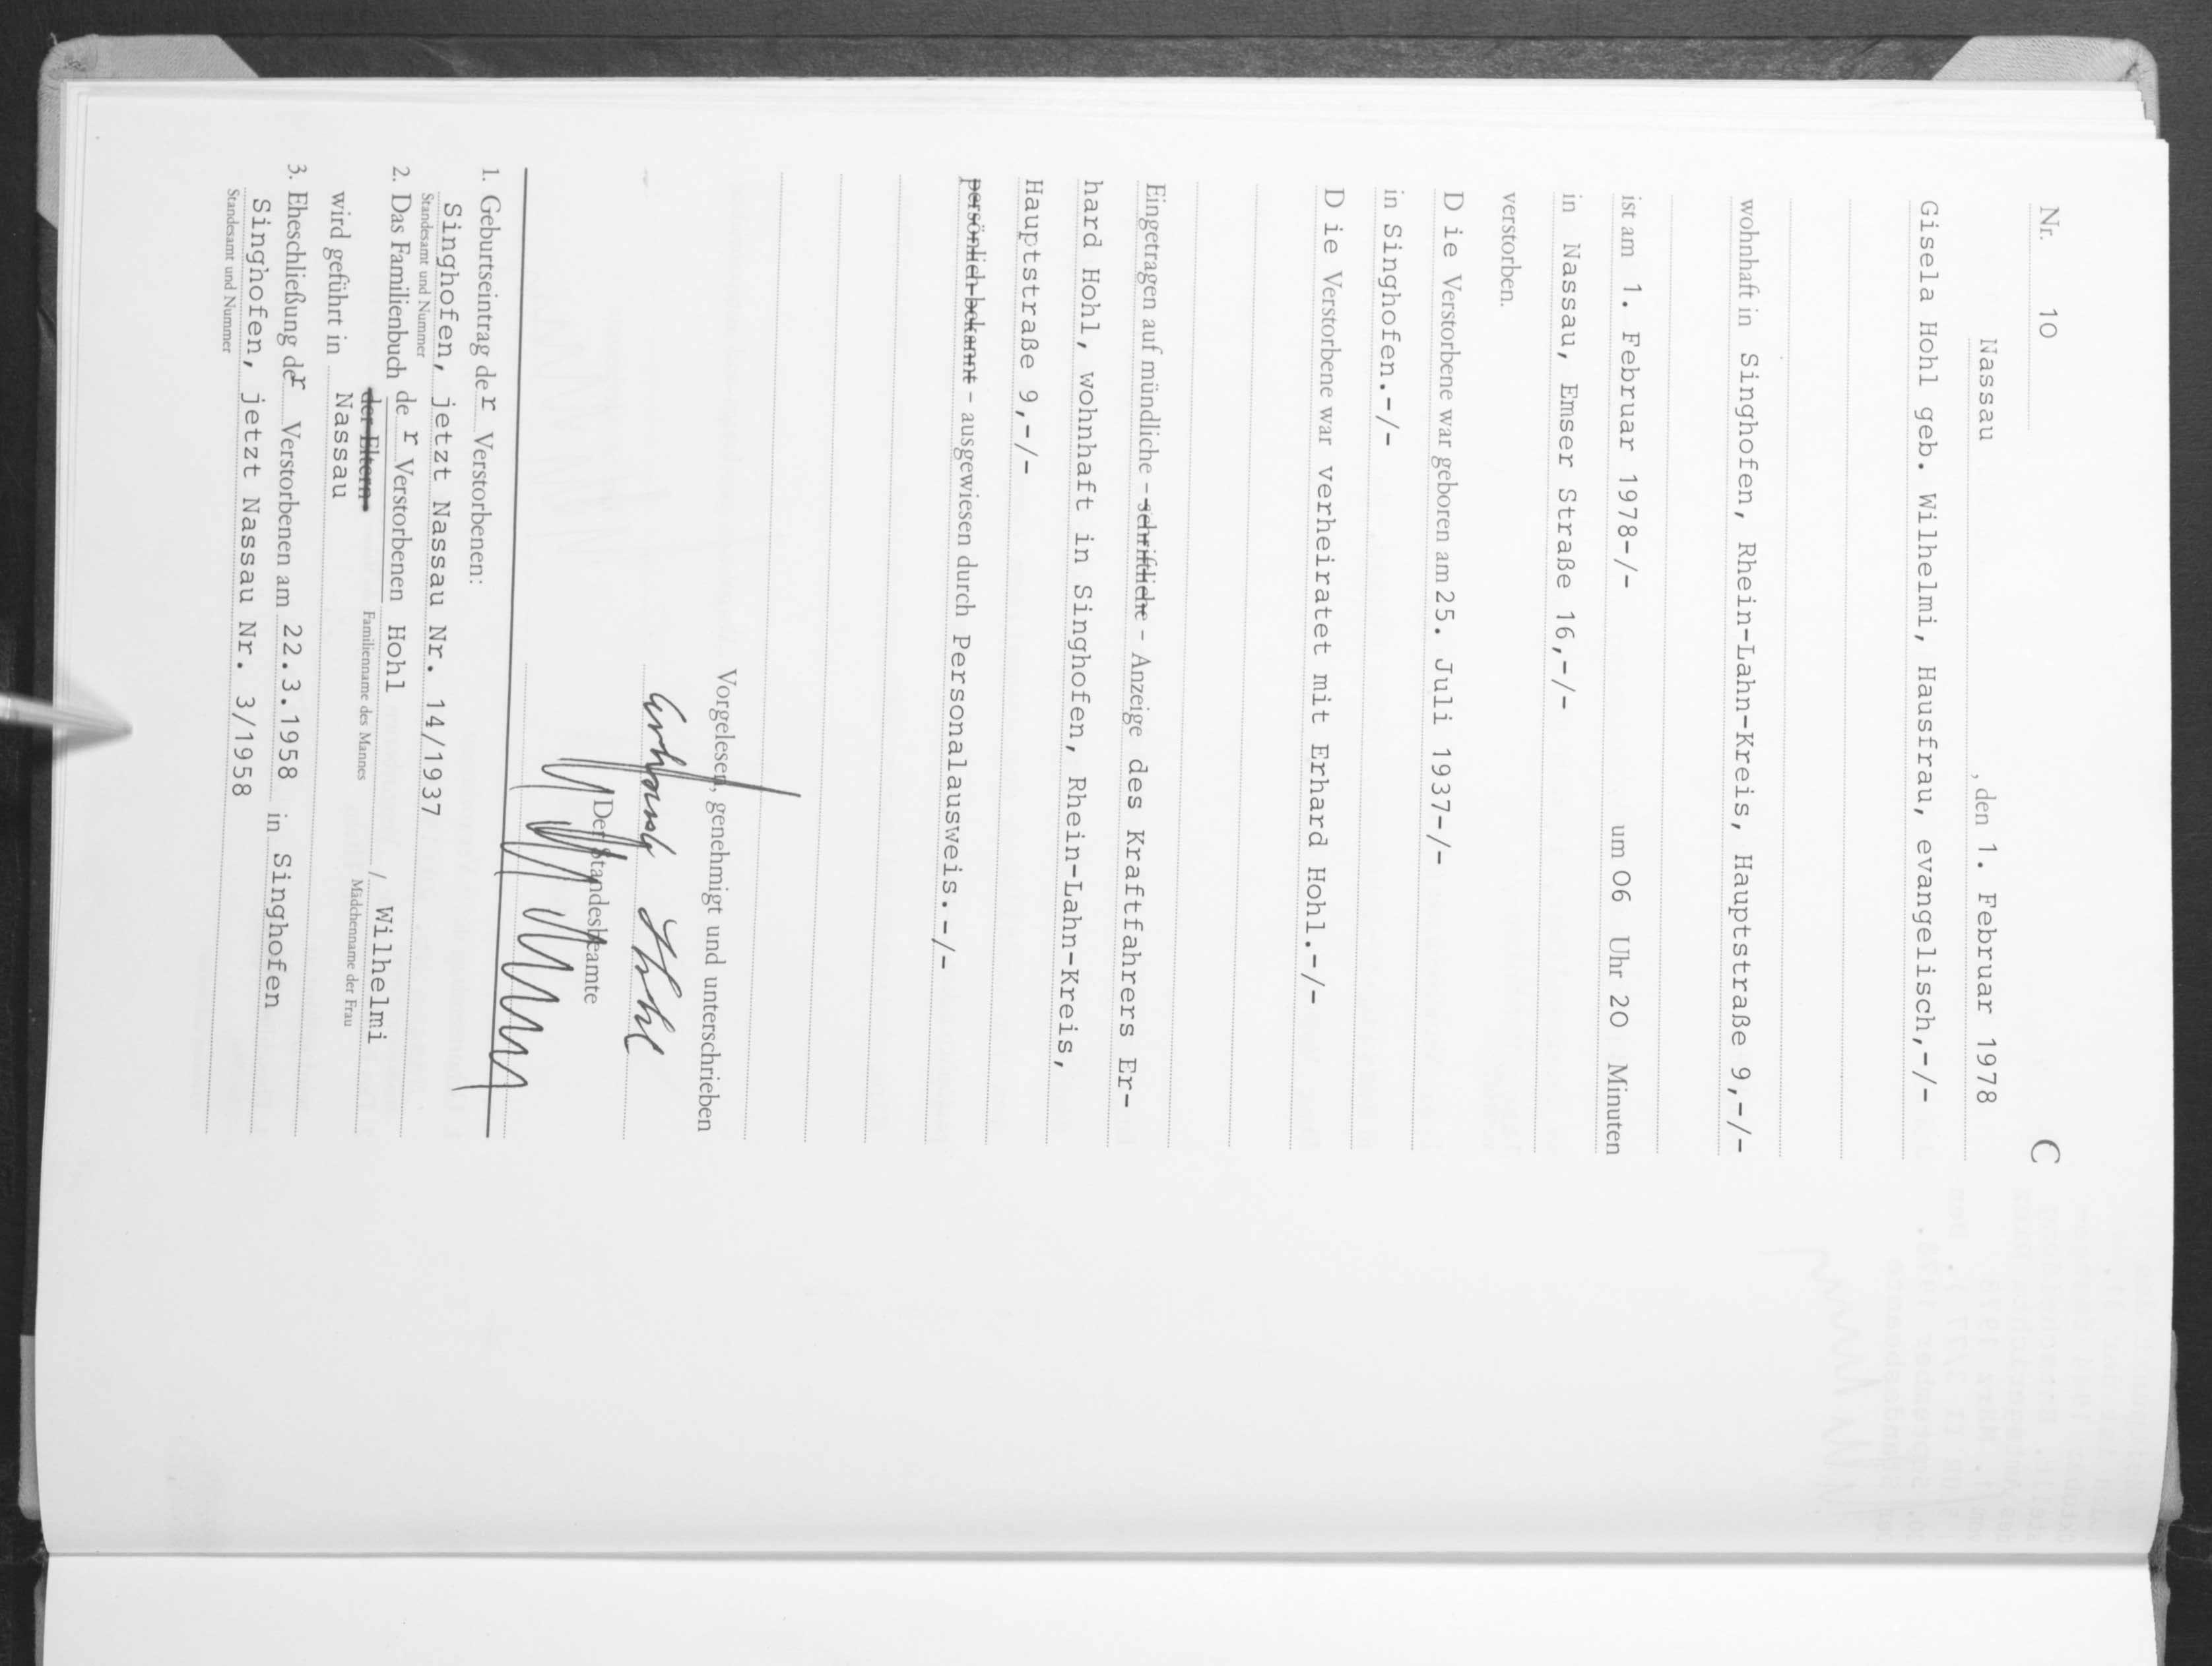 Nr. 10 C
Nassau, den 1. Februar 1978
Gisela Hohl geb. Wilhelmi, Hausfrau, evangelisch,-/-
wohnhaft in Singhofen, Rhein-Lahn-Kreis, Hauptstraße 9,-/-
ist am 1. Februar 1978-/- um 06 Uhr 20 Minuten
in Nassau, Emser Straße 16,-/-
verstorben.
D ie Verstorbene war geboren am 25. Juli 1937-/-
in Singhofen.-/-
D ie Verstorbene war verheiratet mit Erhard Hohl.-/-
Eingetragen auf mündliche - schriftliche - Anzeige des Kraftfahrers Er-
hard Hohl, wohnhaft in Singhofen, Rhein-Lahn-Kreis,
Hauptstraße 9,-/-
persönlich bekannt - ausgewiesen durch Personalausweis.-/-
Vorgelesen, genehmigt und unterschrieben
Erhard Hohl
Der Standesbeamte
1. Geburtseintrag de r Verstorbenen:
Singhofen, jetzt Nassau Nr. 14/1937
Standesamt und Nummer
2. Das Familienbuch de r Verstorbenen Hohl / Wilhelmi
der Eltern Familienname des Mannes Mädchenname der Frau
wird geführt in Nassau
3. Eheschließung der Verstorbenen am 22.3.1958 in Singhofen
Singhofen, jetzt Nassau Nr. 3/1958
Standesamt und Nummer